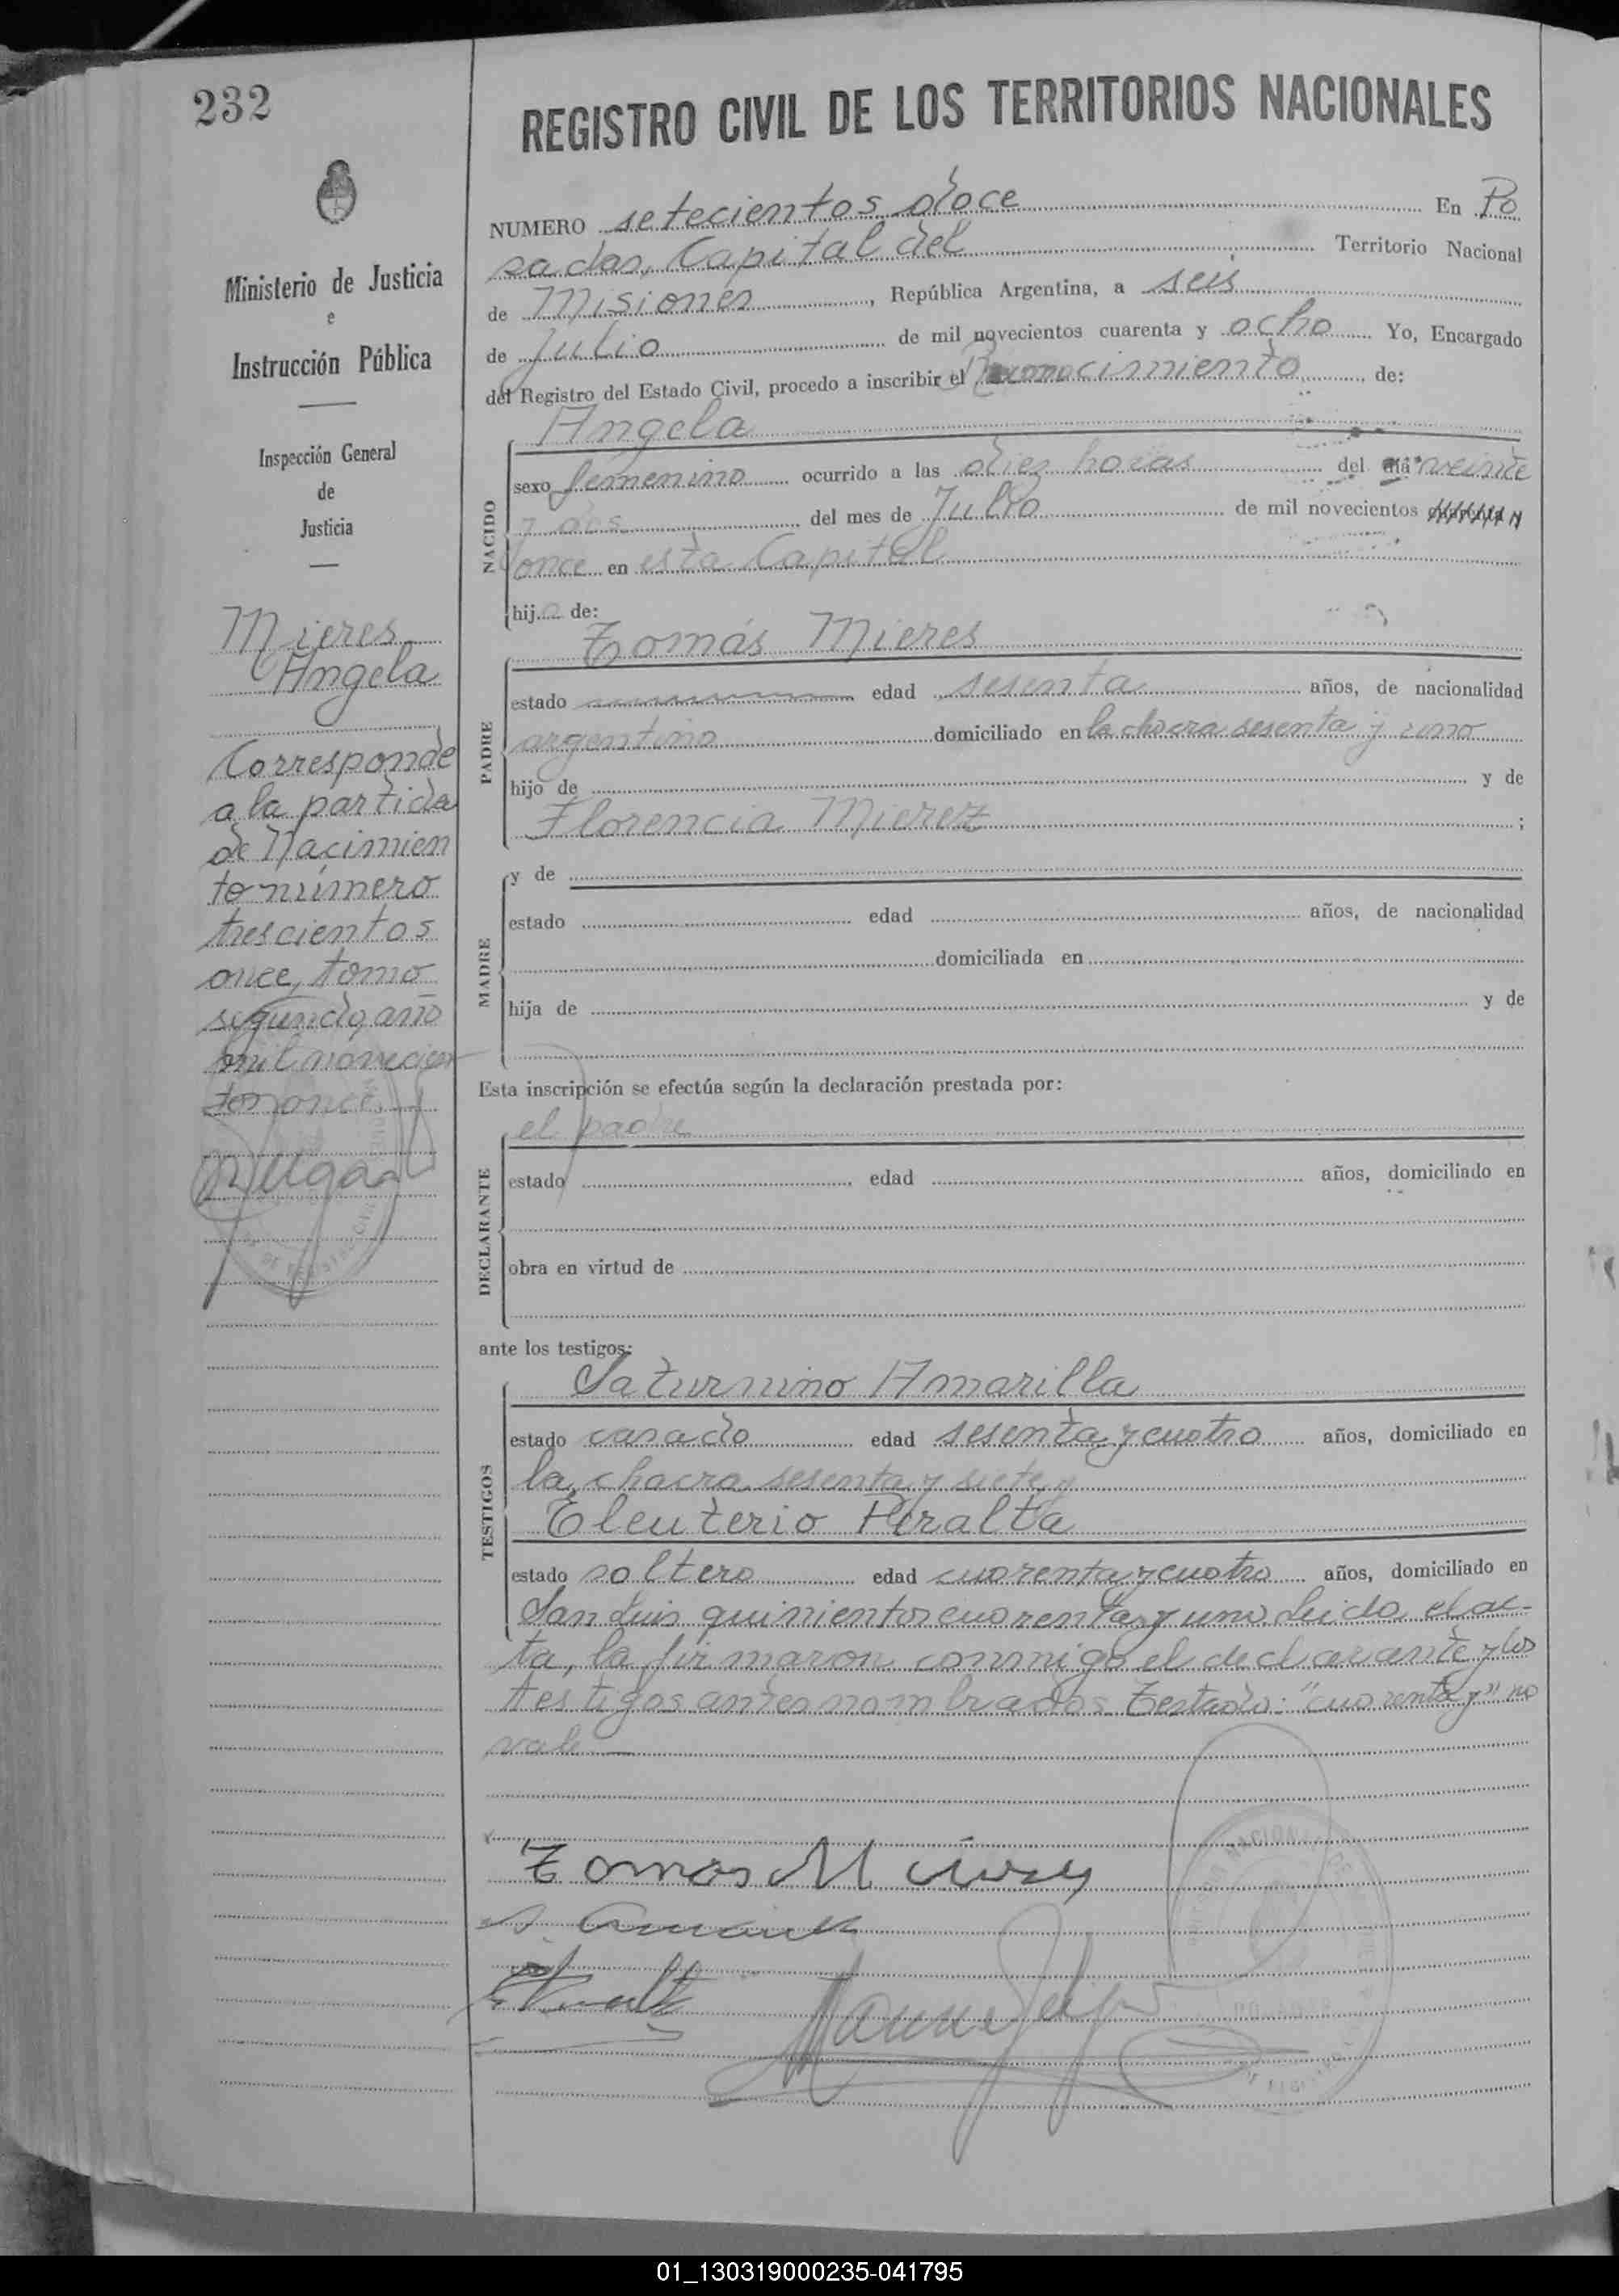 232
REGISTRO CIVIL DE LOS TERRITORIOS NACIONALES
NUMERO setecientos doce En Po
sadas, Capital del Territorio Nacional
de Misiones, República Argentina, a seis
de Julio de mil novecientos cuarenta y ocho Yo, Encargado
del Registro del Estado Civil, procedo a inscribir el Reconocimiento de:
Ministerio de Justicia
e
Instrucción Pública
Inspección General
de
Justicia
Mieres
Angela
Corresponde
a la partida
de Nacimien
to número
trescientos
once, tomo
segundo, año
mil novecien
tos once.
NACIDO
Angela
sexo femenino ocurrido a las diez horas del día veinte
y dos del mes de Julio de mil novecientos
once en esta Capital
hija de:
PADRE
Tomás Mieres
estado edad sesenta años, de nacionalidad
argentino domiciliado en la chacra sesenta y uno
hijo de y de
Florencia Mierez ;
MADRE
y de
estado edad años, de nacionalidad
domiciliada en
hija de y de
Esta inscripción se efectúa según la declaración prestada por:
DECLARANTE
el padre
estado , edad años, domiciliado en
obra en virtud de
ante los testigos:
TESTIGOS
Saturnino Amarilla
estado casado edad sesenta y cuatro años, domiciliado en
la chacra sesenta y siete y
Eleuterio Peralta
estado soltero edad cuarenta y cuatro años, domiciliado en
San Luis quinientos cuarenta y uno. Leida el ac-
ta, la firmaron conmigo el declarante y los
testigos antes nombrados. Testado: "cuarenta y" no
vale
Tomas Mierez
01_130319000235-041795